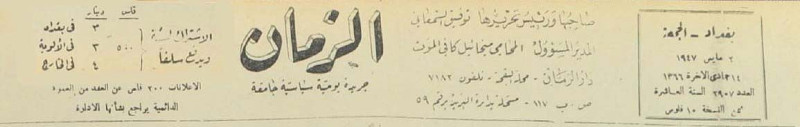 بغداد - الجمعة
٢ مايس ١٩٤٧
١٤ جمادى الآخرة ١٣٦٦
العدد ٢٩٠٧ السنة العاشرة
ثمن النسخة ١٠ فلوس
صاحبها ورئيس تحريرها توفيق السمعاني
المدير المسؤول المحامي ميخائيل كافي الموت
دار الزمان - محلة - تلفون ٧١٨٢
ص . ب ١١٧ - مسجلة بدائرة البريد برقم ٥٩
الزمان
جريدة يومية سياسية جامعة
فلس دينار
الاشتراك لسنة ويدفع سلفاً
٣ في بغداد
٥٠٠ ٣ في الألوية
٤ في الخارج
الاعلانات ٢٠٠ فلس عن العقد من العمود
الدائمية يراجع بشأنها الادارة